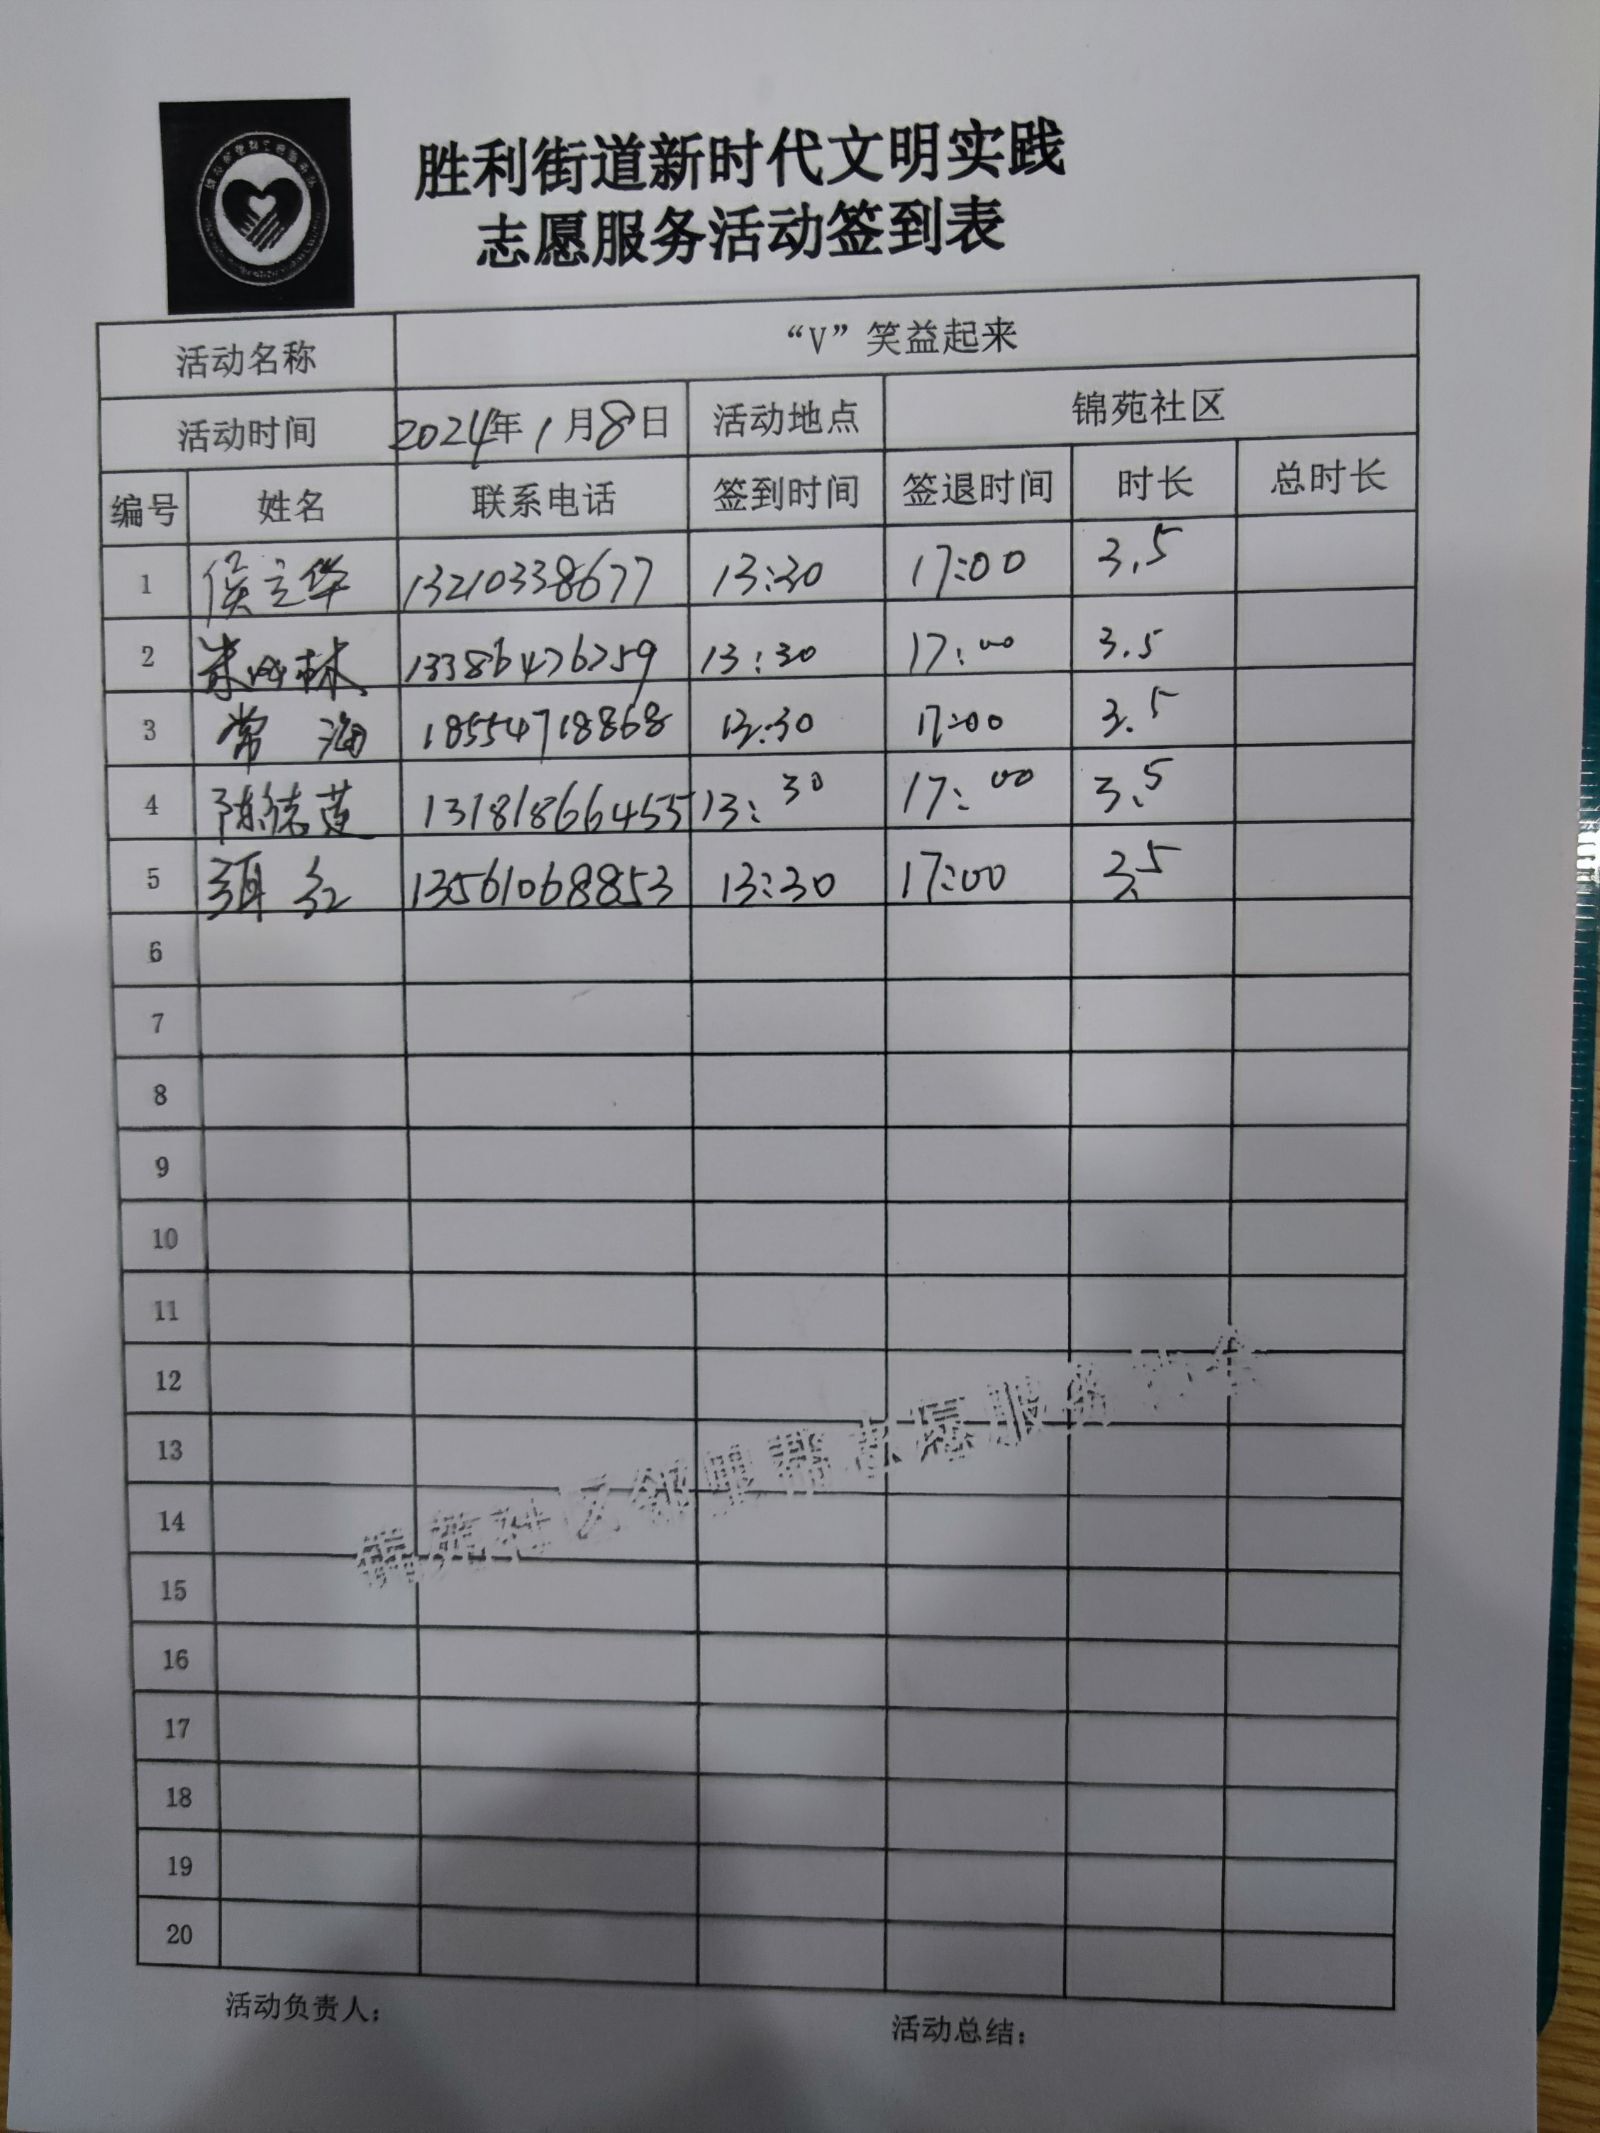 胜利街道新时代文明实践
志愿服务活动签到表
活动名称 “V”笑益起来
活动时间 2024年1月8日 活动地点 锦苑社区
编号 姓名 联系电话 签到时间 签退时间 时长 总时长
1 侯立华 13210338677 13:30 17:00 3.5
2 林 13386476259 13:30 17:00 3.5
3 常海 18554718868 13:30 17:00 3.5
4 陈德英 13181866455 13:30 17:00 3.5
5 红 13561068853 13:30 17:00 3.5
6
7
8
9
10
11
12
13
14
15
16
17
18
19
20
锦苑社区邻里帮志愿服务协会
活动负责人： 活动总结：